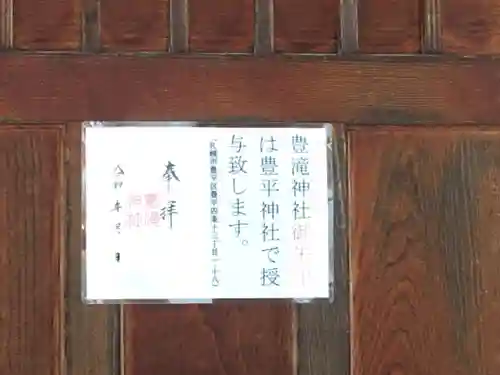 豊滝神社御朱印
は豊平神社で授
与致します。
(札幌市豊平区豊平四条十三丁目一-十八)
奉拝
豊滝
神社
令和 年 月 日